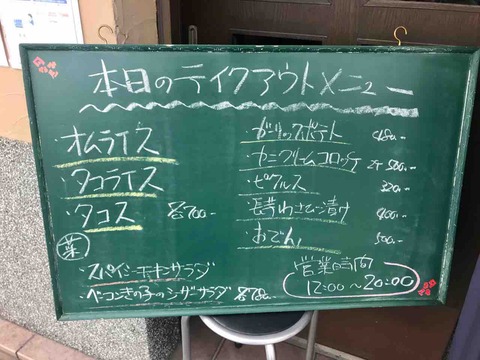 本日のテイクアウトメニュー
オムライス
・タコライス
・タコス 各700-
菜
・スパイシーチキンサラダ
・ベーコンきの子のシーザーサラダ 各780-
・ガーリックポテト 480-
・カニクリームコロッケ 2ケ 500-
・ピクルス 320-
・長芋わさび漬け 400-
・おでん 500-
営業時間
12:00~20:00